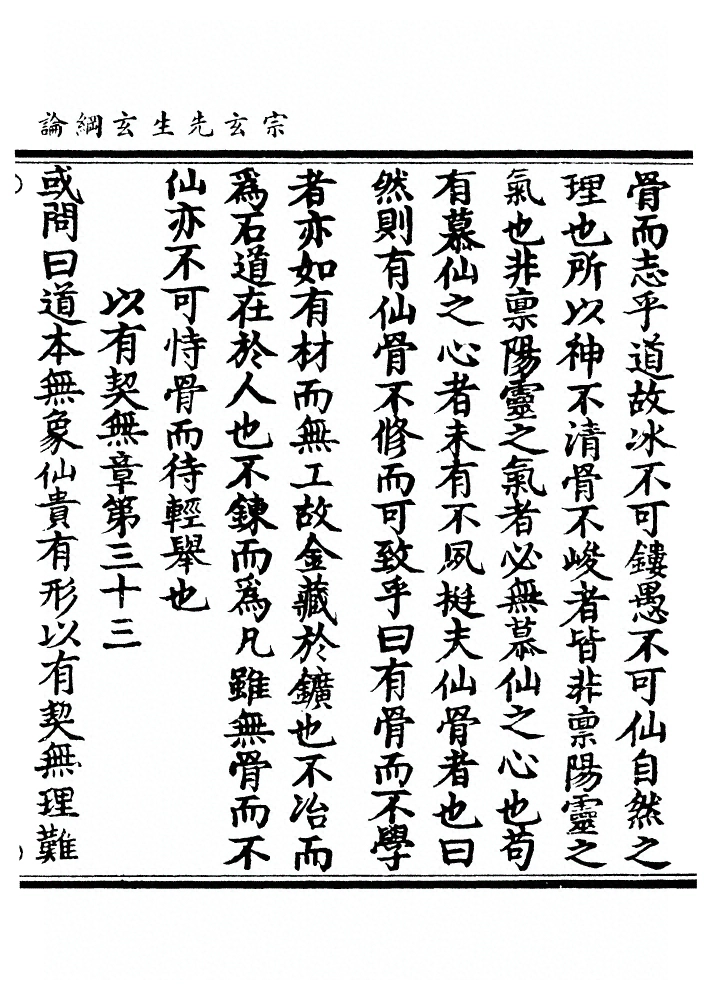 宗玄先生玄綱論
骨而志乎道故冰不可鏤愚不可仙自然之
理也所以神不清骨不峻者皆非禀陽靈之
氣也非禀陽靈之氣者必無慕仙之心也苟
有慕仙之心者未有不夙挺夫仙骨者也曰
然則有仙骨不修而可致乎曰有骨而不學
者亦如有材而無工故金藏於鑛也不冶而
爲石道在於人也不鍊而爲凡雖無骨而不
仙亦不可恃骨而待輕舉也
以有契無章第三十三
或問曰道本無象仙貴有形以有契無理難